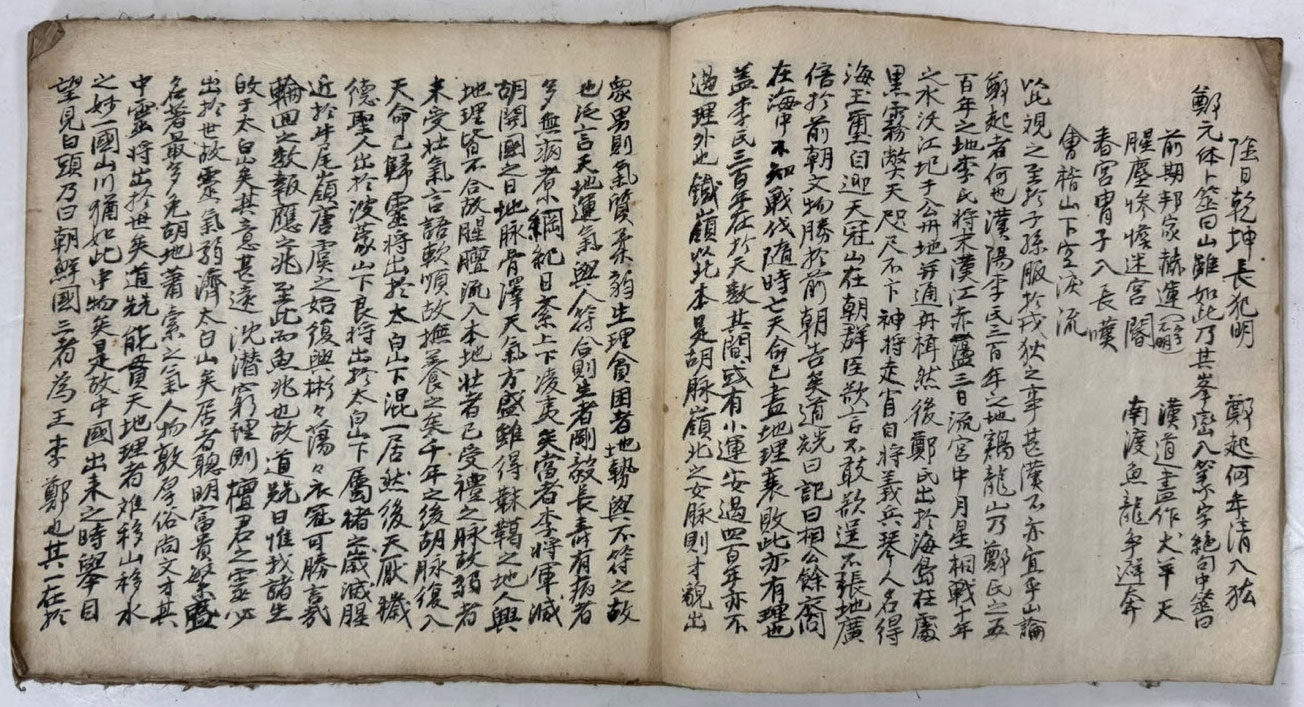 陰日乾坤長犯明 鄭起何年清入
鄭元体卜筮曰山雖如此乃其峯巒入篆字絶句中筮曰
前期邦家赫運 漢道盡作犬羊天
腥塵慘憺迷宮闕 南渡魚龍爭避奔
春宮冑子入長嘆
會稽山下空淚流
以此視之至於子孫服於戎狄之事甚漢不亦宜乎山論
鄭起者何也漢陽李氏三百年之地鷄龍山乃鄭氏之五
百年之地李氏將末漢江赤盪三日流宮中月星相戰十年
之水沃江圮于公州地芽通舟楫然後鄭氏出於海島在處
黒霧弊天咫尺不卞神將走肖自將義兵琴人名得
海玉璽自迎天冠山在朝群臣欲言不敢欲逞不張地廣
倍於前朝文物勝於前朝吉矣道詵曰記曰相公餘裔尙
在海中不知戰伐隨時亡天命已盡地理衰敗此亦有理也
盖李氏三百年在於天数其間或有小運安過四百年亦不
過理外也鐵嶺以北本是胡脉嶺北之女脉則才貌出
衆男則氣質柔弱生理貧困者地勢與不符之故
也泛言天地運氣與人符合則生者剛毅長壽有病者
多無病者小綱紀日紊上下凌夷矣當者李將軍滅
胡開國之日地脉骨澤天氣方盛雖得靺鞨之地人與
地理皆不合故腥膻流入本地壯者已受禮之脉故弱者
未受壯氣言語軟順故撫養食之矣千年之後胡脉復入
天命已歸靈將出於太白山下混一居然後天厭穢
德聖人出於波蒙山下良將出於太白山下屬猪之歲滅腥
近於牛尾嶺唐虞之始復興彬々蕩々衣冠可勝言哉
輪回之数報應之兆至此而魚兆也故道詵曰惟我諸生
改于太白山矣其意甚遠沈潜窮理則檀君之靈必
出於世故靈氣弱濟太白山矣居者聰明富貴繁盛
名著最多免胡地蕭索之氣人物敦厚俗尚文才其
中靈將出於世矣道詵能貫天地理者难移山移水
之妙一國山川猶如此中物矣是故中國出來之時擧目
望見白頭乃曰朝鮮國三者為王李鄭也其一在於